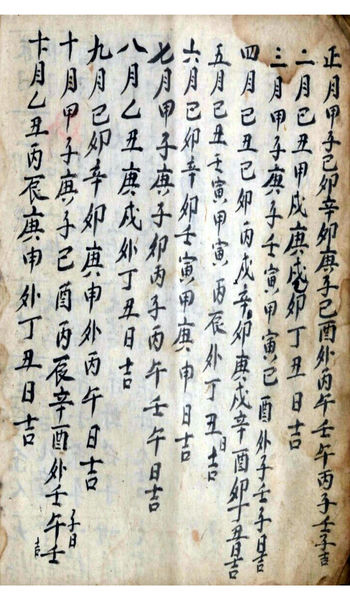 正月甲子己卯辛卯庚子己酉外丙午壬午丙子壬子吉
二月己丑甲戌庚戌外丁丑日吉
三月甲子庚子壬寅甲寅己酉外子壬子日吉
四月己丑己卯丙戌辛卯庚戌辛酉卯丁丑日吉
五月己丑壬寅甲寅丙辰外丁丑日吉
六月己卯辛卯壬寅甲庚申日吉
七月甲子庚子卯丙子丙午壬午日吉
八月乙丑庚戌外丁丑日吉
九月己卯辛卯庚申外丙午日吉
十月甲子庚子己酉丙辰辛酉外壬午壬子日吉
十月乙丑丙辰庚申外丁丑日吉